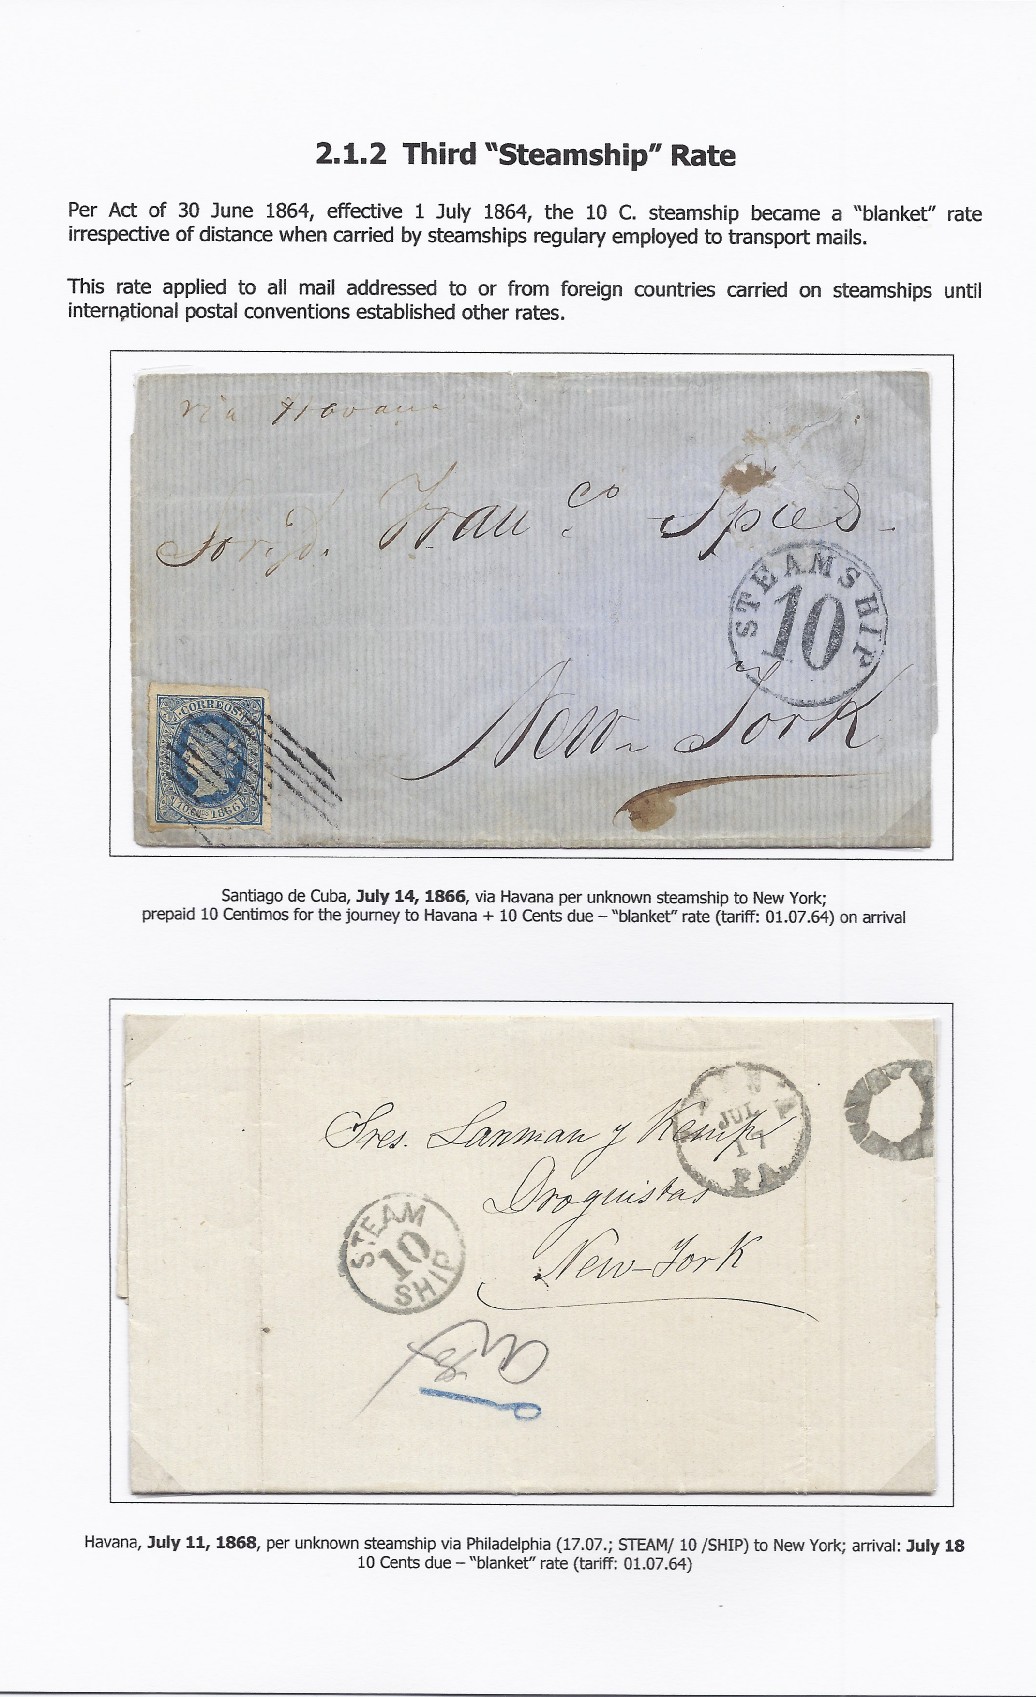 2.1.2 Third "Steamship" Rate
Per Act of 30 June 1864, effective 1 July 1864, the 10 C. steamship became a "blanket" rate
irrespective of distance when carried by steamships regulary employed to transport mails.
This rate applied to all mail addressed to or from foreign countries carried on steamships until
international postal conventions established other rates.
via Havana
Franco Spies
STEAMSHIP
10
New-York
CORREOS
1866
Santiago de Cuba, July 14, 1866, via Havana per unknown steamship to New York;
prepaid 10 Centimos for the journey to Havana + 10 Cents due – "blanket" rate (tariff: 01.07.64) on arrival
JUL
17
PA.
Sres. Lanman y Kemp
Droguistas
New-York
STEAM
10
SHIP
Havana, July 11, 1868, per unknown steamship via Philadelphia (17.07.; STEAM/ 10 /SHIP) to New York; arrival: July 18
10 Cents due – "blanket" rate (tariff: 01.07.64)